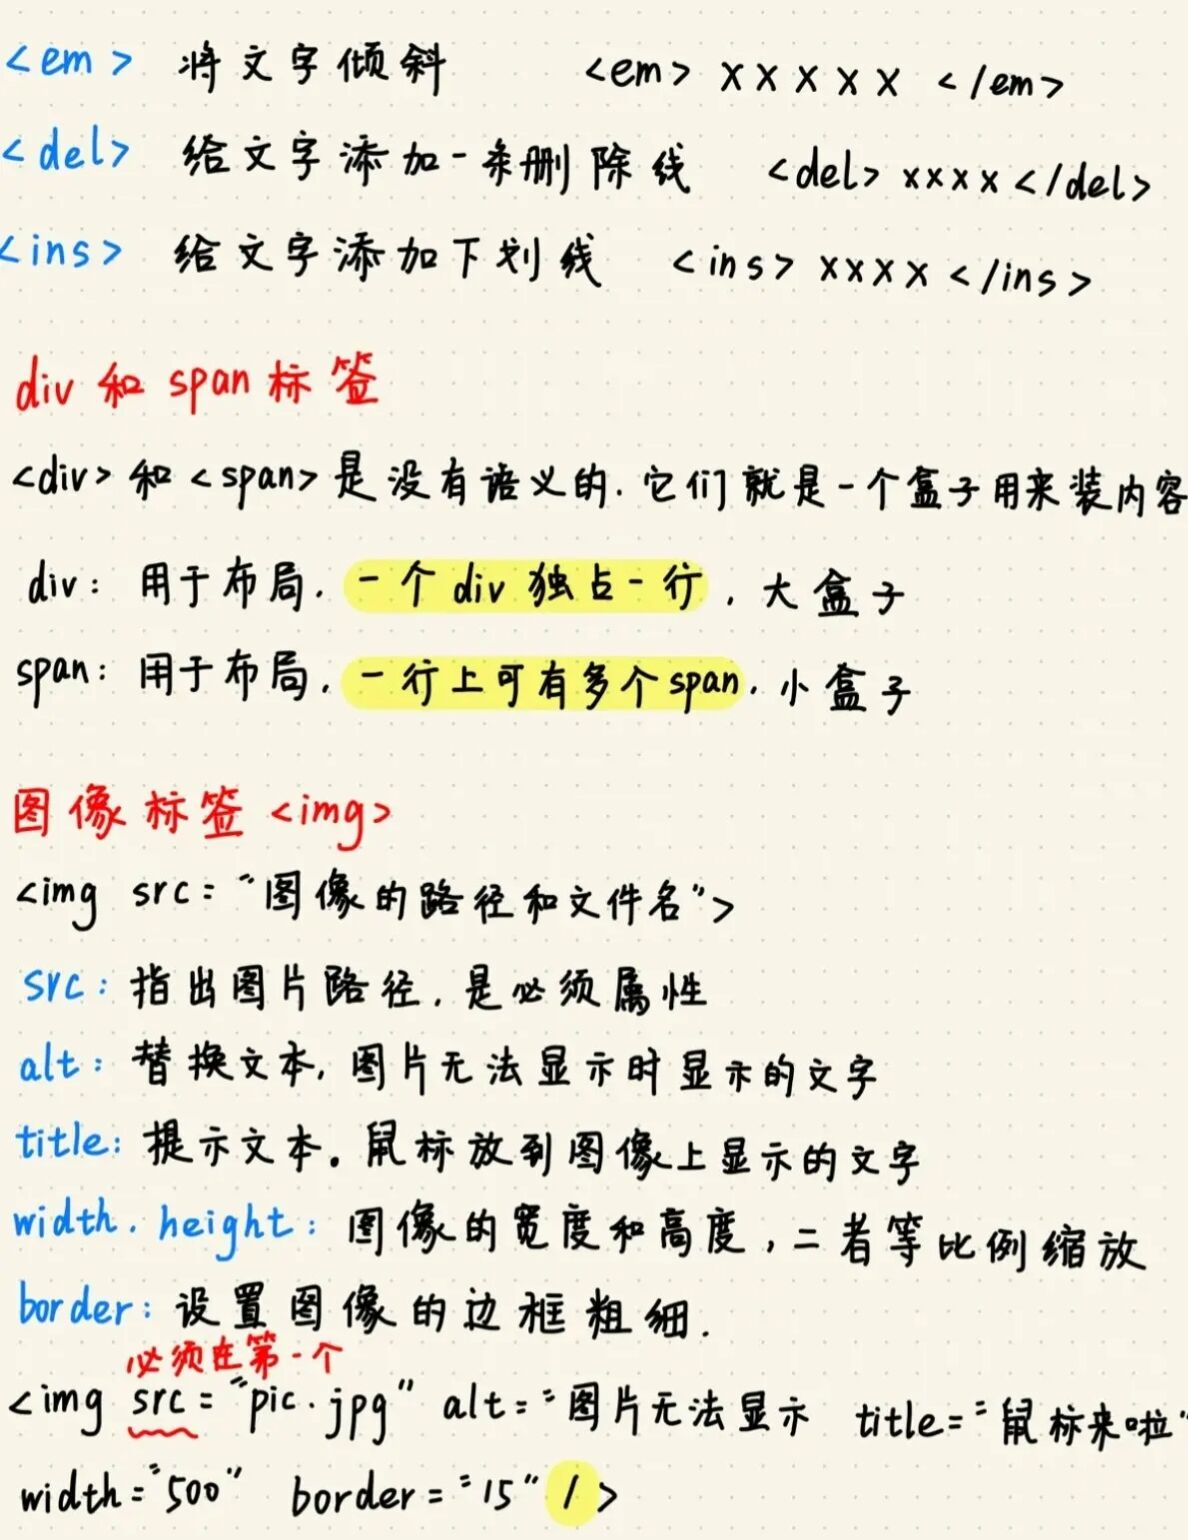 <em> 将文字倾斜 <em> x x x x x </em>
<del> 给文字添加一条删除线 <del> xxxx </del>
<ins> 给文字添加下划线 <ins> xxxx </ins>
div 和 span 标签
<div> 和 <span> 是没有语义的. 它们就是一个盒子用来装内容
div: 用于布局. 一个 div 独占一行, 大盒子
span: 用于布局. 一行上可有多个 span. 小盒子
图像标签 <img>
<img src = "图像的路径和文件名">
src: 指出图片路径. 是必须属性
alt: 替换文本, 图片无法显示时显示的文字
title: 提示文本。鼠标放到图像上显示的文字
width. height: 图像的宽度和高度, 二者等比例缩放
border: 设置图像的边框粗细.
必须在第一个
<img src = "pic.jpg" alt = "图片无法显示 title = "鼠标来啦"
width = "500" border = "15" />